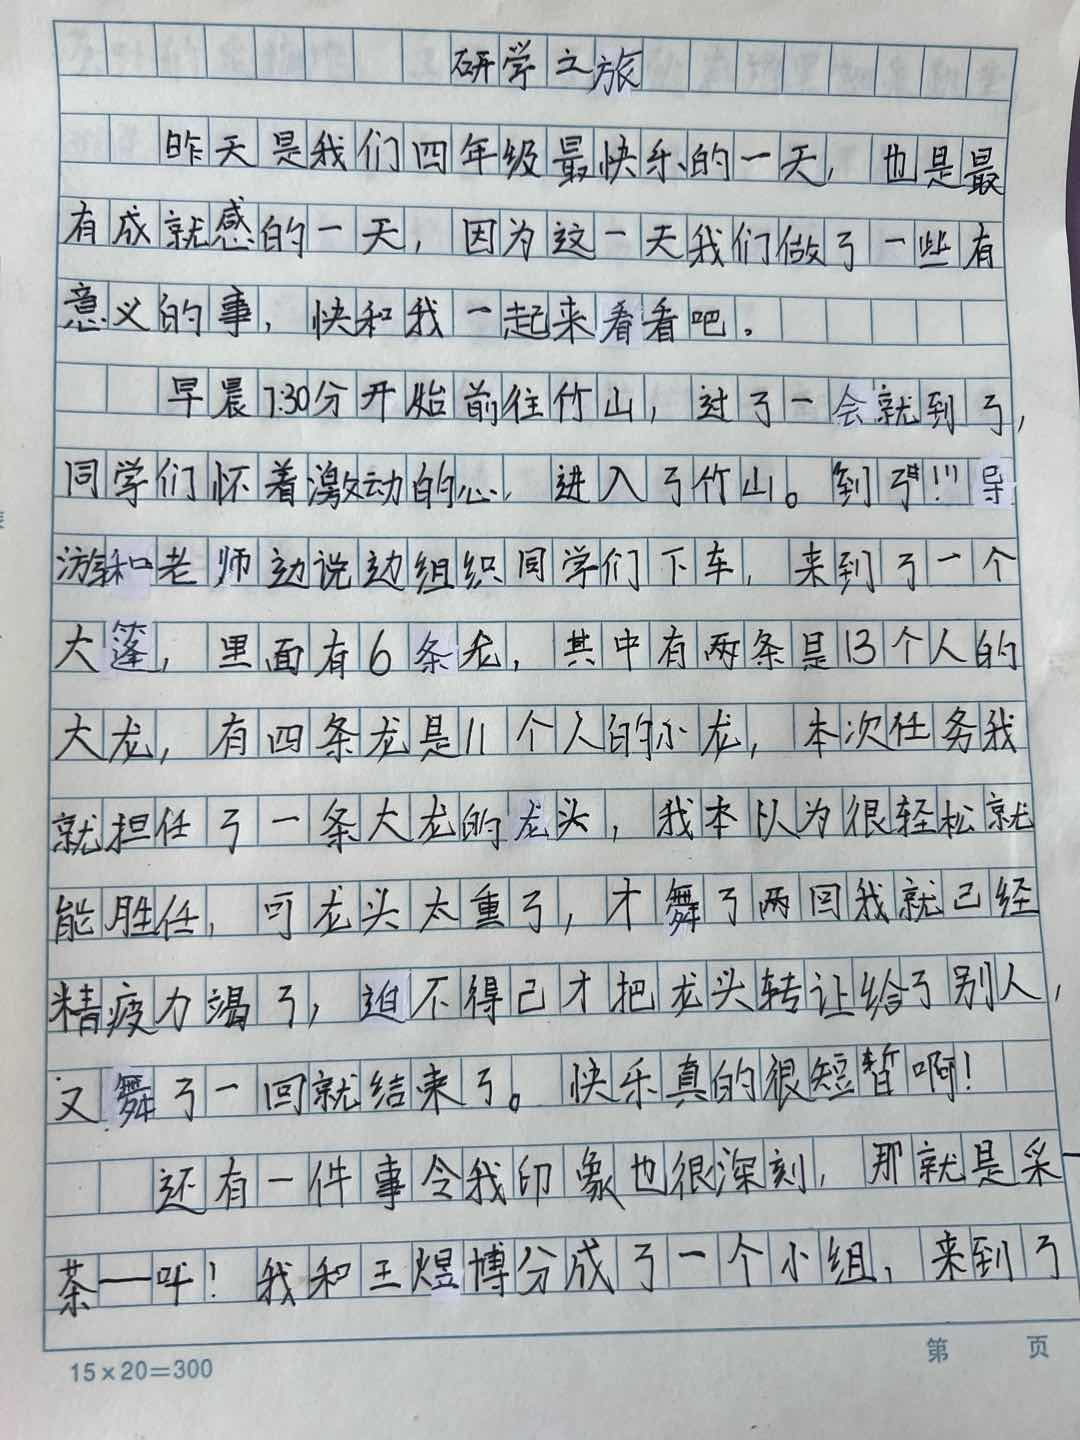 研学之旅
昨天是我们四年级最快乐的一天，也是最
有成就感的一天，因为这一天我们做了一些有
意义的事，快和我一起来看看吧。
早晨7:30分开始前往竹山，过了一会就到了，
同学们怀着激动的心，进入了竹山。到了!!!导
游和老师边说边组织同学们下车，来到了一个
大篷，里面有6条龙，其中有两条是13个人的
大龙，有四条龙是11个人的小龙，本次任务我
就担任了一条大龙的龙头，我本以为很轻松就
能胜任，可龙头太重了，才舞了两回我就己经
精疲力竭了，迫不得己才把龙头转让给了别人，
又舞了一回就结束了。快乐真的很短暂啊！
还有一件事令我印象也很深刻，那就是采
茶——叶！我和王煜博分成了一个小组，来到了
15×20=300
第 页